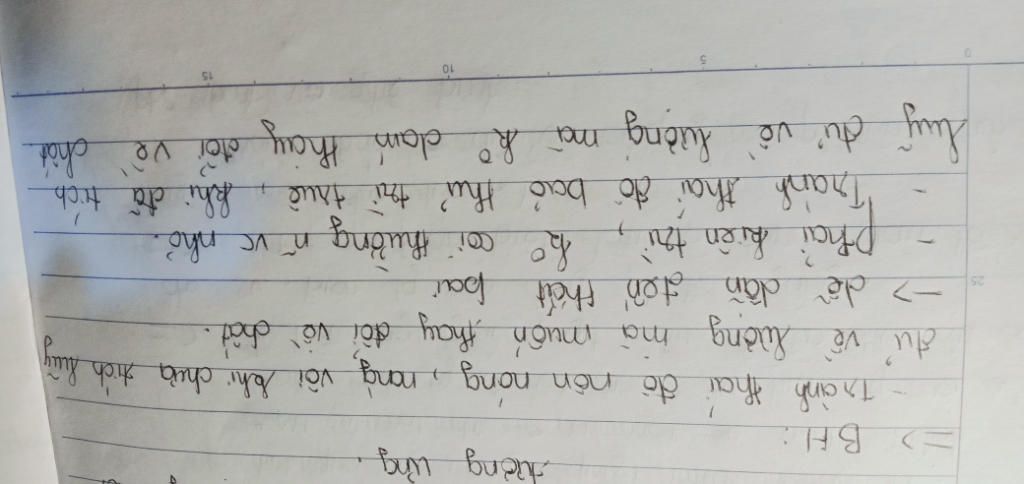 tương ứng.
=> BH:
- Tránh thái độ nôn nóng, nóng vội khi chưa tích luỹ
đủ về lượng mà muốn thay đổi về chất.
25 -> dễ dẫn đến thất bại
- Phải kiên trì, k° coi thường n~ vc nhỏ.
- Tránh thái độ bảo thủ trì truê, khi đã tích
luỹ đủ về lượng mà k° dám thay đổi về chất.
0 5 10 15